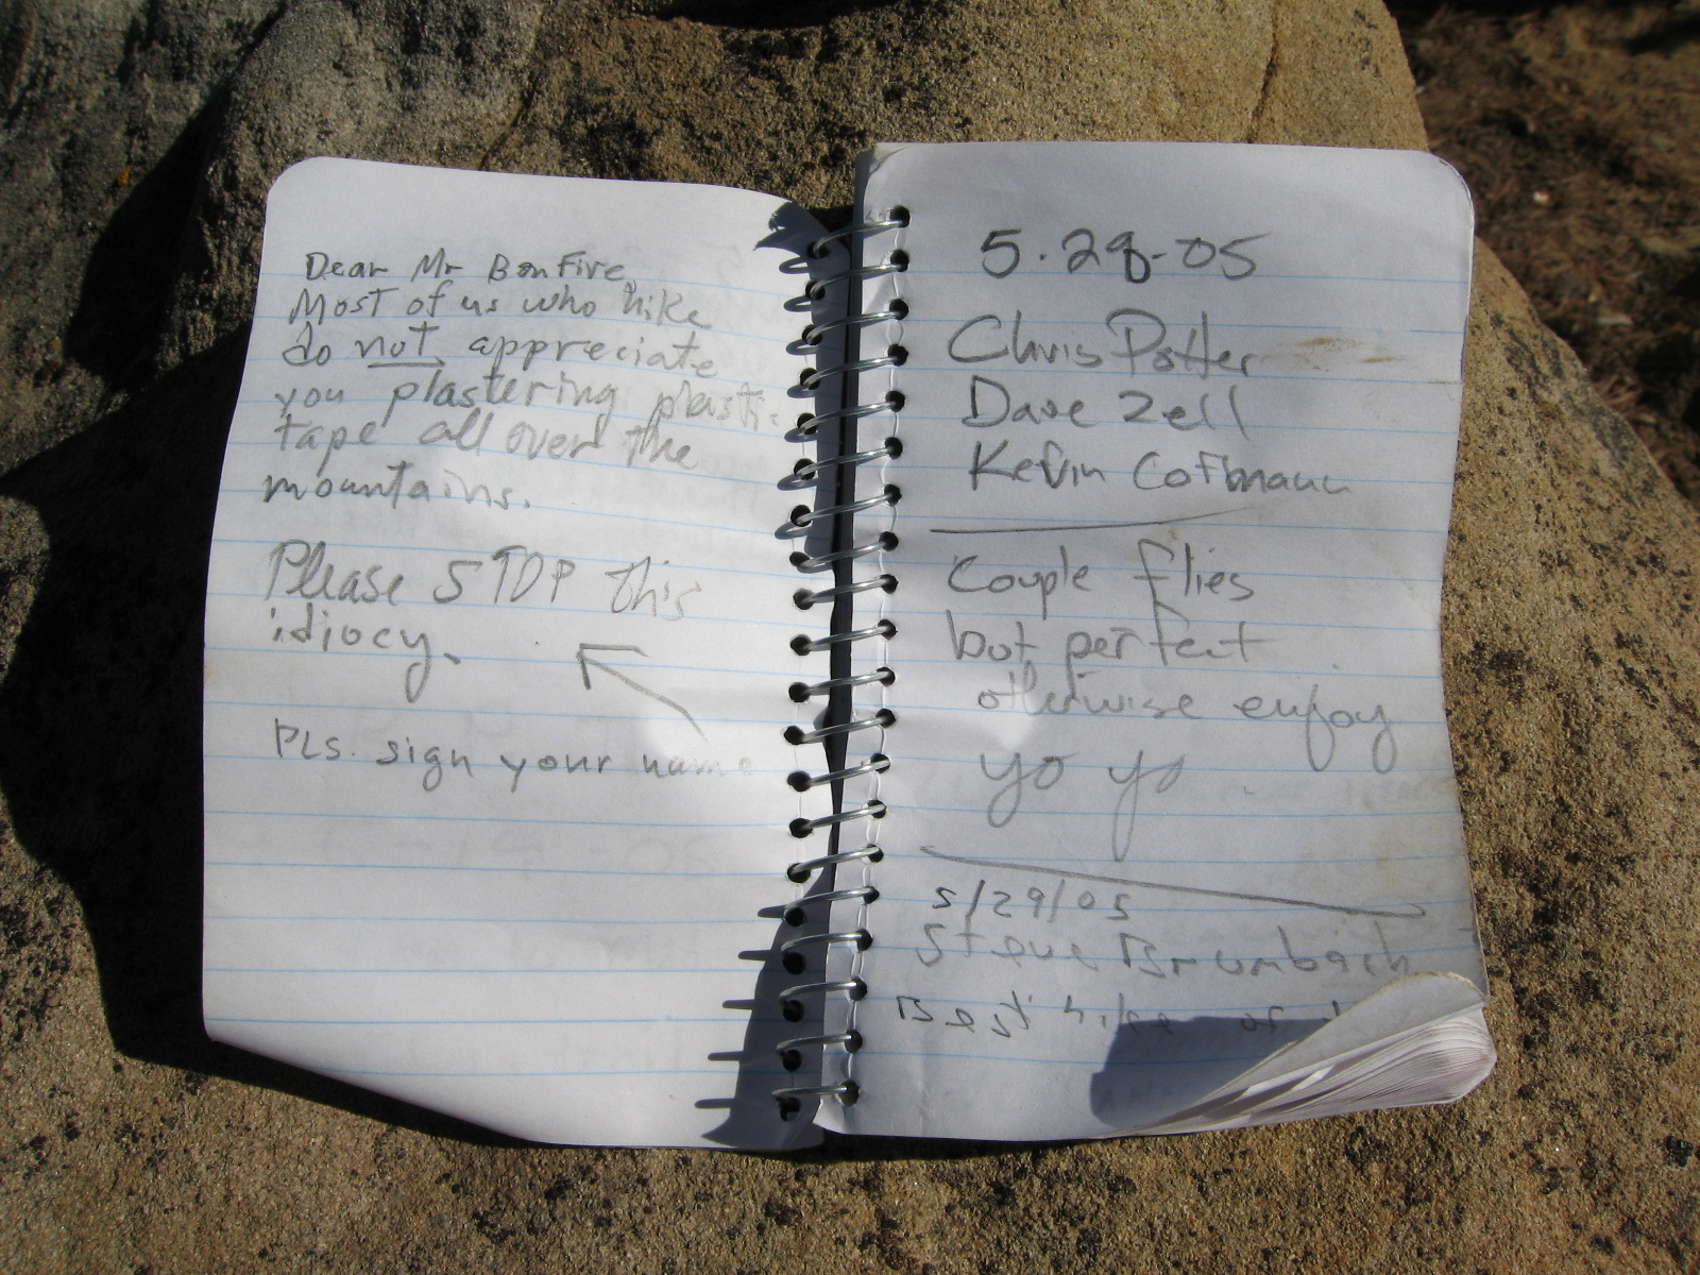 Dear Mr Bonfire,
Most of us who hike
do not appreciate
you plastering plastic
tape all over the
mountains.
Please STOP this
idiocy.
Pls. sign your name
5.29-05
Chris Potter
Dave Zell
Kevin
Couple flies
but perfect
otherwise enjoy
yo yo
5/29/05
Steve Brumbach
Best hike